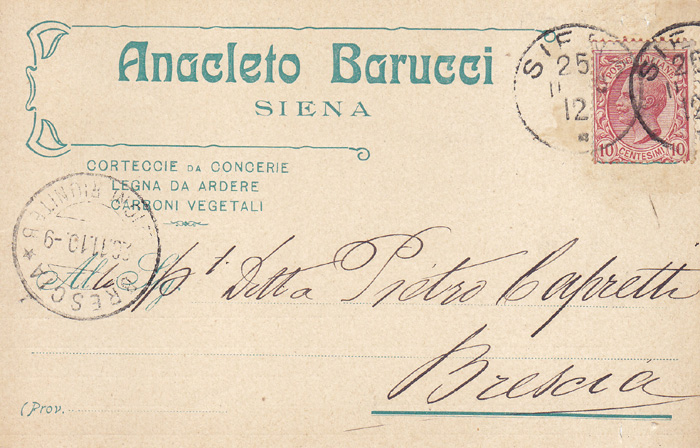 Anacleto Barucci
SIENA
CORTECCIE DA CONCERIE
LEGNA DA ARDERE
CARBONI VEGETALI
SIE
25
11
12
SIE
25
POSTE ITALIANE
10 CENTESIMI 10
BRESCIA
11.10.-9
Alla Sp. Ditta Pietro Capretti
Brescia
(Prov.